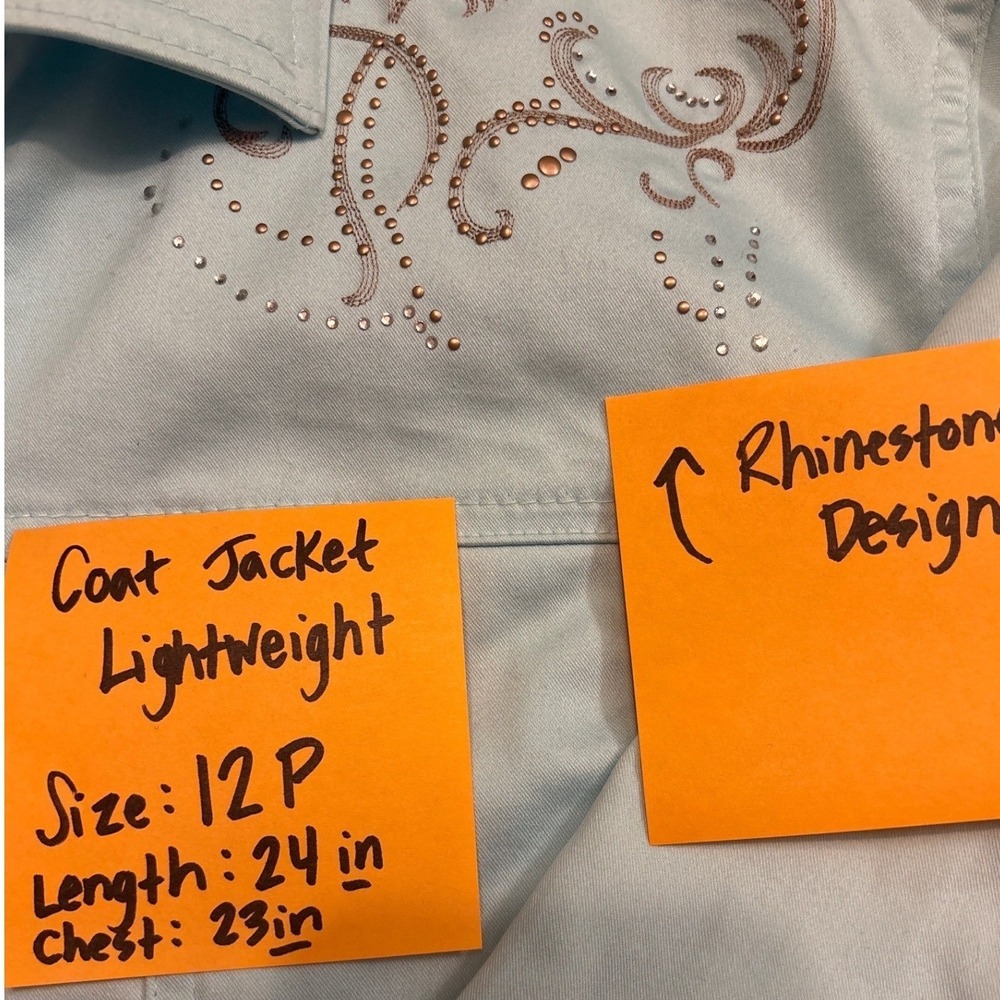 Coat Jacket
Lightweight
Size: 12 P
Length: 24 in
Chest: 23in
Rhinestone
Design